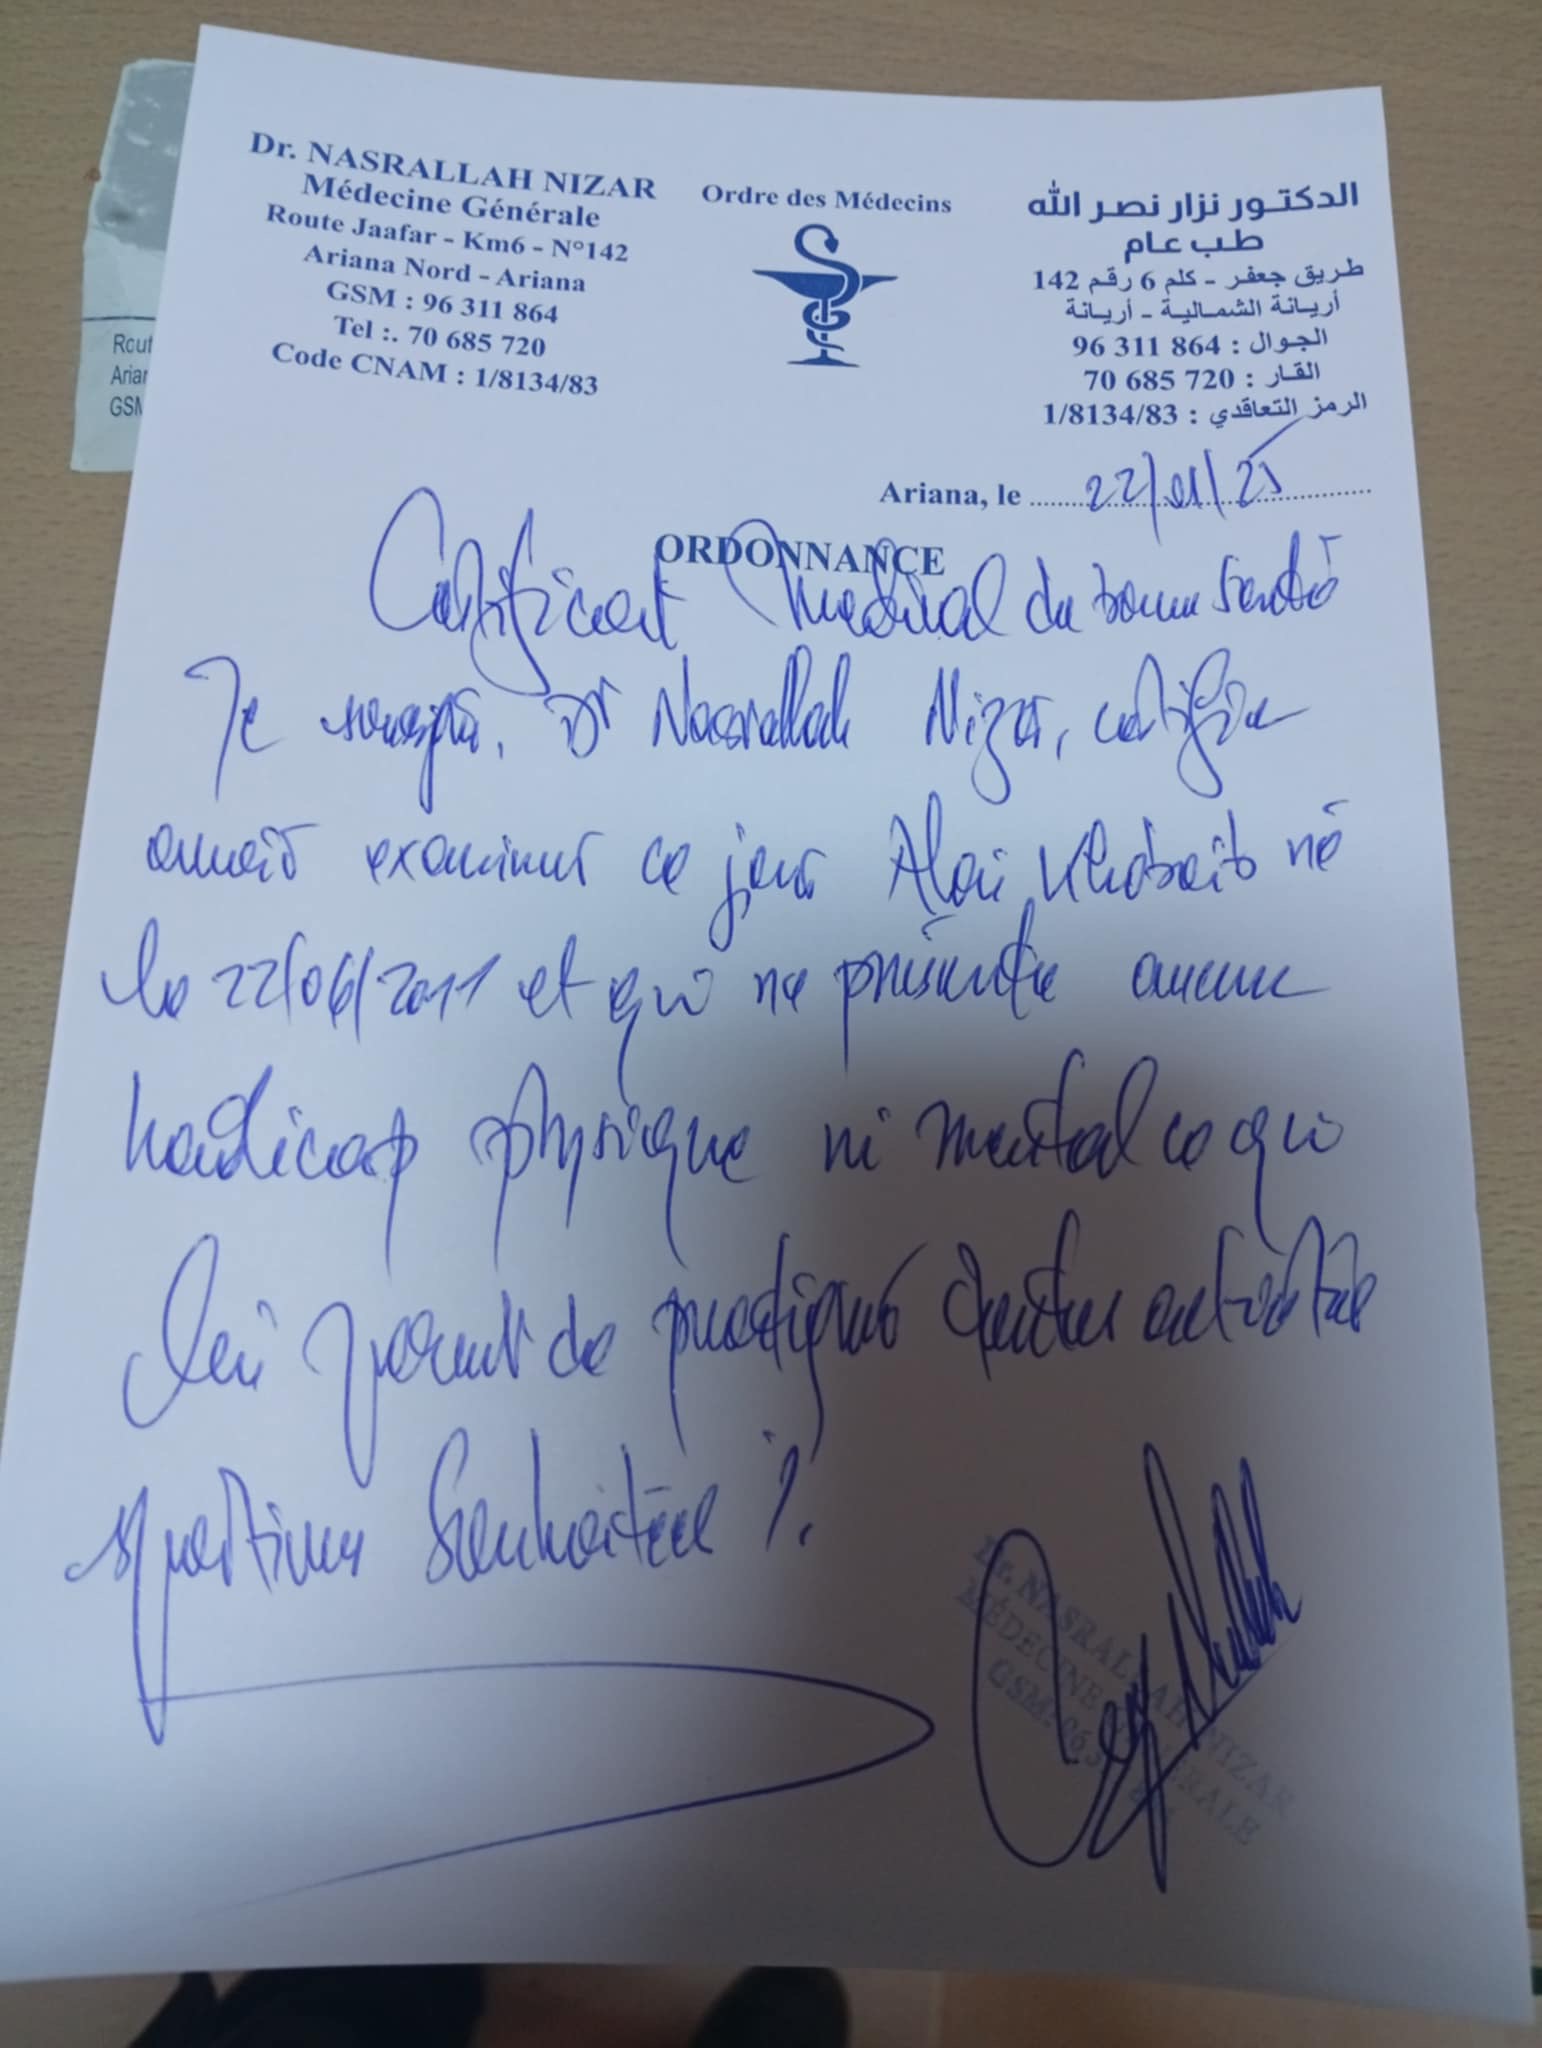 Dr. NASRALLAH NIZAR
Médecine Générale
Route Jaafar - Km6 - N°142
Ariana Nord - Ariana
GSM : 96 311 864
Tel :. 70 685 720
Code CNAM : 1/8134/83
Ordre des Médecins
الدكتور نزار نصر الله
طب عام
طريق جعفر - كلم 6 رقم 142
أريانة الشمالية - أريانة
الجوال : 96 311 864
القار : 70 685 720
الرمز التعاقدي : 1/8134/83
Rout
Arian
GSM
Ariana, le 22/01/25
ORDONNANCE
Certificat Medical de bonne Santé
Je soussigné, Dr Nasrallah Nizar, certifie
avoir examiner ce jour né
le 22/06/2011 et qui ne présente aucun
handicap physique ni mental ce qui
lui permet de activités
sportives Souhaitées
Dr. NASRALLAH NIZAR
MÉDECINE GÉNÉRALE
GSM: 96 3